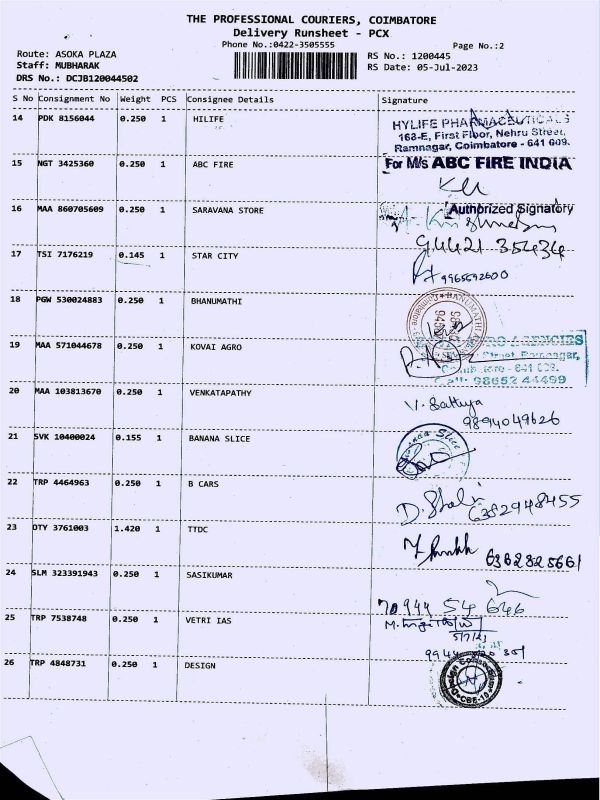 THE PROFESSIONAL COURIERS, COIMBATORE
Delivery Runsheet - PCX
Phone No.:0422-3505555
Page No.:2
Route: ASOKA PLAZA
Staff: MUBHARAK
DRS No.: DCJB120044502
RS No.: 1200445
RS Date: 05-Jul-2023
S No Consignment No Weight PCS Consignee Details Signature
14 PDK 8156044 0.250 1 HILIFE
HYLIFE PHARMACEUTICALS
168-E, First Floor, Nehru Street,
Ramnagar, Coimbatore - 641 009.
15 NGT 3425360 0.250 1 ABC FIRE
For M/s ABC FIRE INDIA
Authorized Signatory
16 MAA 860705609 0.250 1 SARAVANA STORE
94421 35434
17 TSI 7176219 0.145 1 STAR CITY
9965592600
18 PGW 530024883 0.250 1 BHANUMATHI
BANUMATHI
19 MAA 571044678 0.250 1 KOVAI AGRO
AGRO AGENCIES
Street, Ramnagar,
Cell: 98652 44499
20 MAA 103813670 0.250 1 VENKATAPATHY
V. Sathya
9894049626
21 SVK 10400024 0.155 1 BANANA SLICE
Slice
22 TRP 4464963 0.250 1 B CARS
6382948455
23 OTY 3761003 1.420 1 TTDC
6362825661
24 SLM 323391943 0.250 1 SASIKUMAR
70944 54 646
25 TRP 7538748 0.250 1 VETRI IAS
5/7/23
26 TRP 4848731 0.250 1 DESIGN
CBE-12